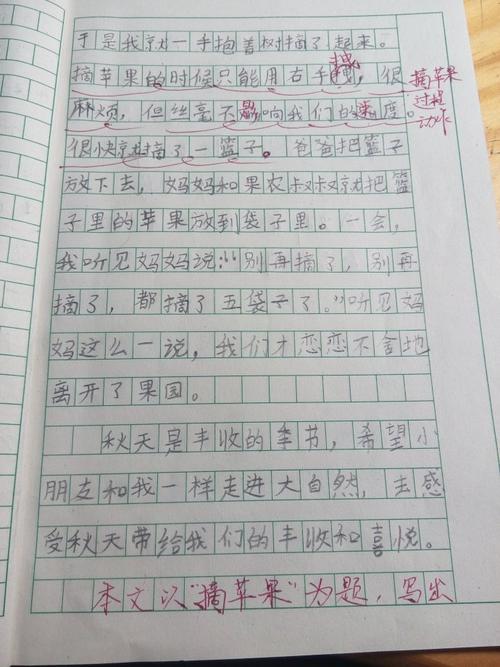 于是我就一手抱着树摘了起来。
摘苹果的时候只能用右手摘，很
麻烦，但丝毫不影响我们的速度。
摘苹果
过程
动作
很快就摘了一篮子。爸爸把篮子
放下去，妈妈和果农叔叔就把篮
子里的苹果放到袋子里。一会，
我听见妈妈说：“别再摘了，别再
摘了，都摘了五袋子了。”听见妈
妈这么一说，我们才恋恋不舍地
离开了果园。
秋天是丰收的季节，希望小
朋友和我一样走进大自然，去感
受秋天带给我们的丰收和喜悦。
本文以“摘苹果”为题，写出